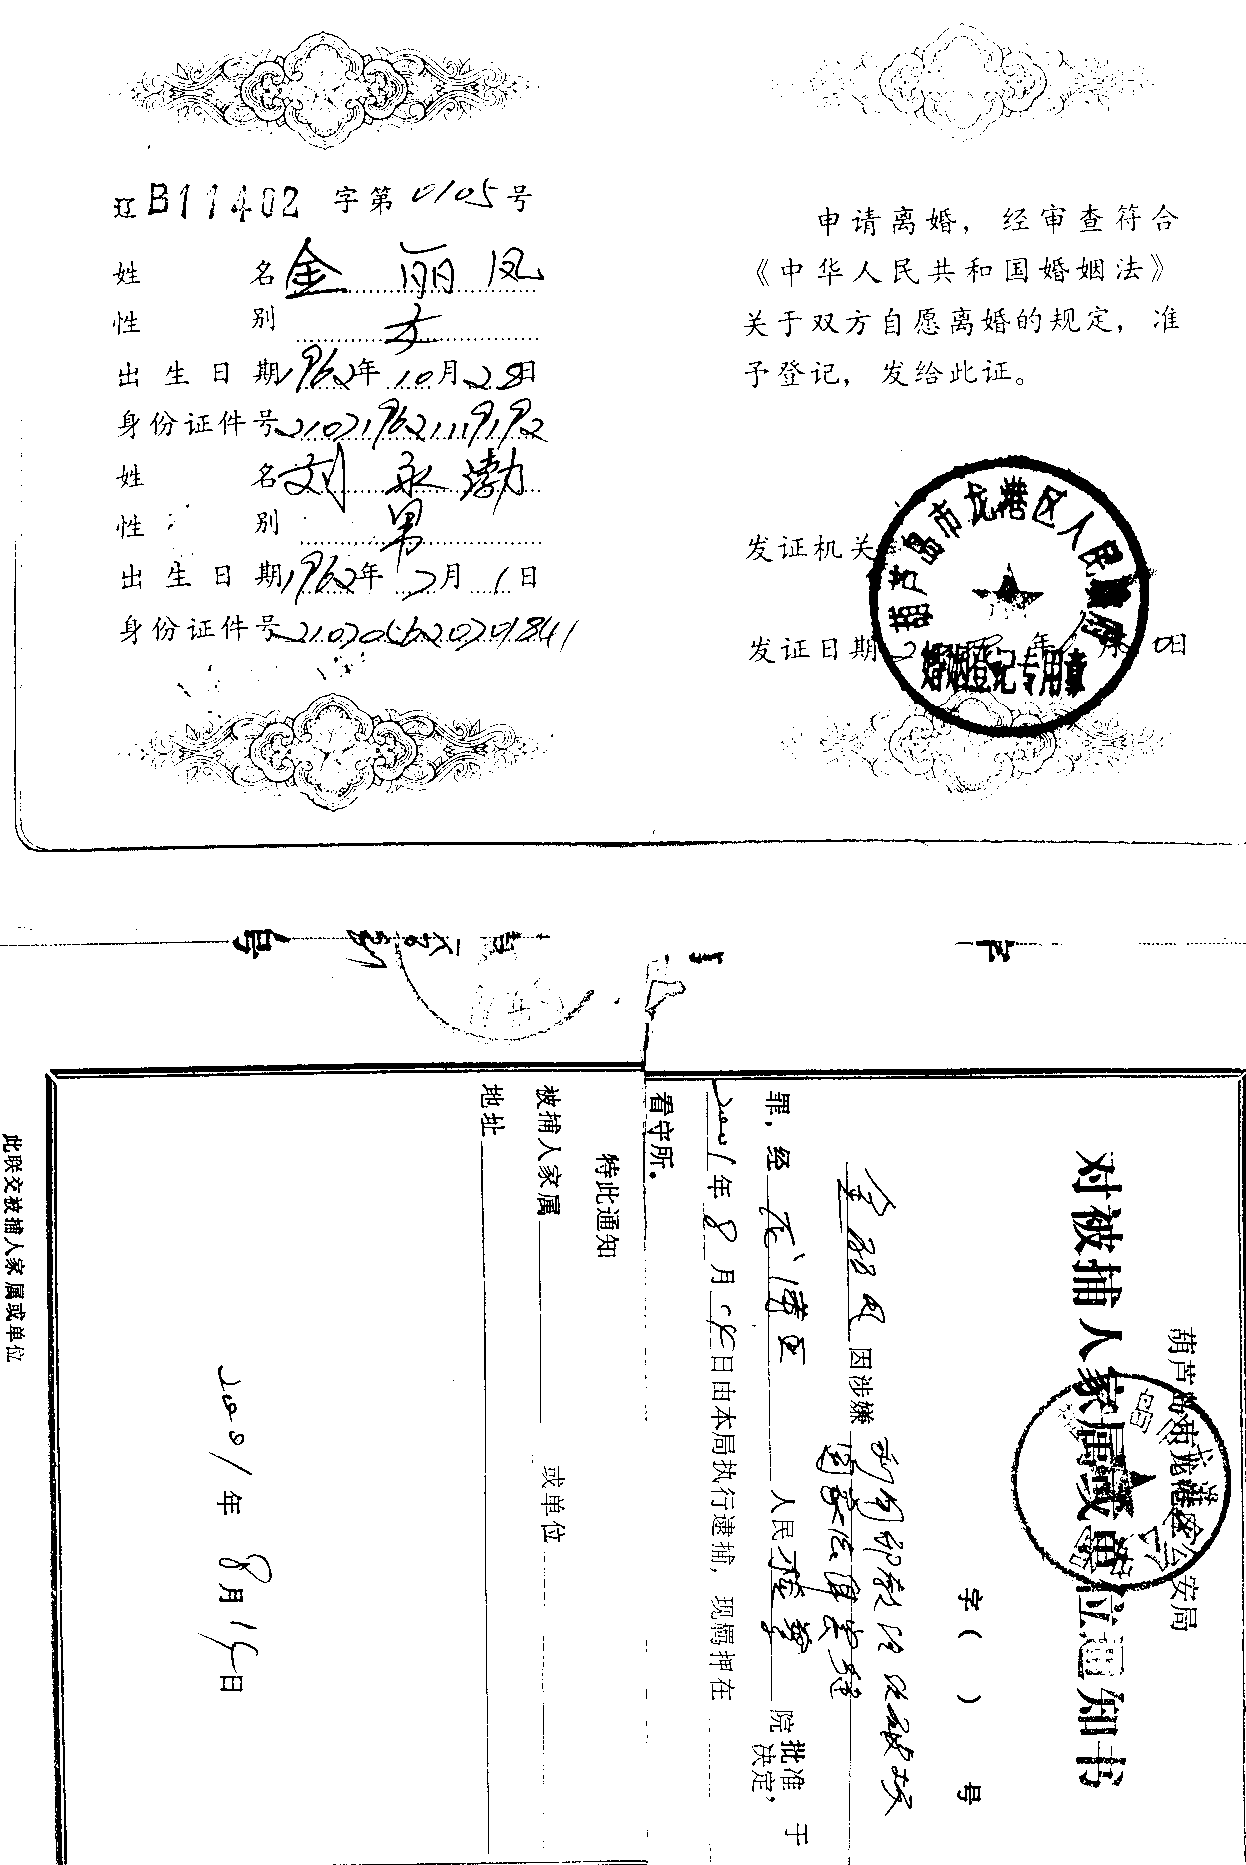 辽B11402 字第0105号
姓 名 金丽凤
性 别 女
出生日期 1962年10月28日
身份证件号
姓 名 刘永渤
性 别 男
出生日期 1962年2月1日
身份证件号
申请离婚，经审查符合
《中华人民共和国婚姻法》
关于双方自愿离婚的规定，准
予登记，发给此证。
发证机关
发证日期 年 月 日
葫芦岛市龙港区人民政府
婚姻登记专用章
葫芦岛市龙港区公安局
对被捕人家属或单位通知书
字（ ）号
金丽凤因涉嫌利用邪教组织破坏
国家法律实施
罪，经龙港区人民检察院批准决定，于
2001年8月15日由本局执行逮捕，现羁押在
看守所。
特此通知
被捕人家属 或单位
地址
2001年8月15日
此联交被捕人家属或单位